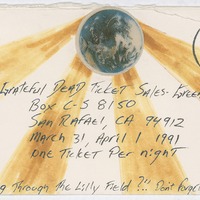 Grateful Dead Ticket Sales-
Box C-S 8150
San Rafael, CA 94912
March 31, April 1 1991
One Ticket Per night
Through The Lilly Field ?!! Don't